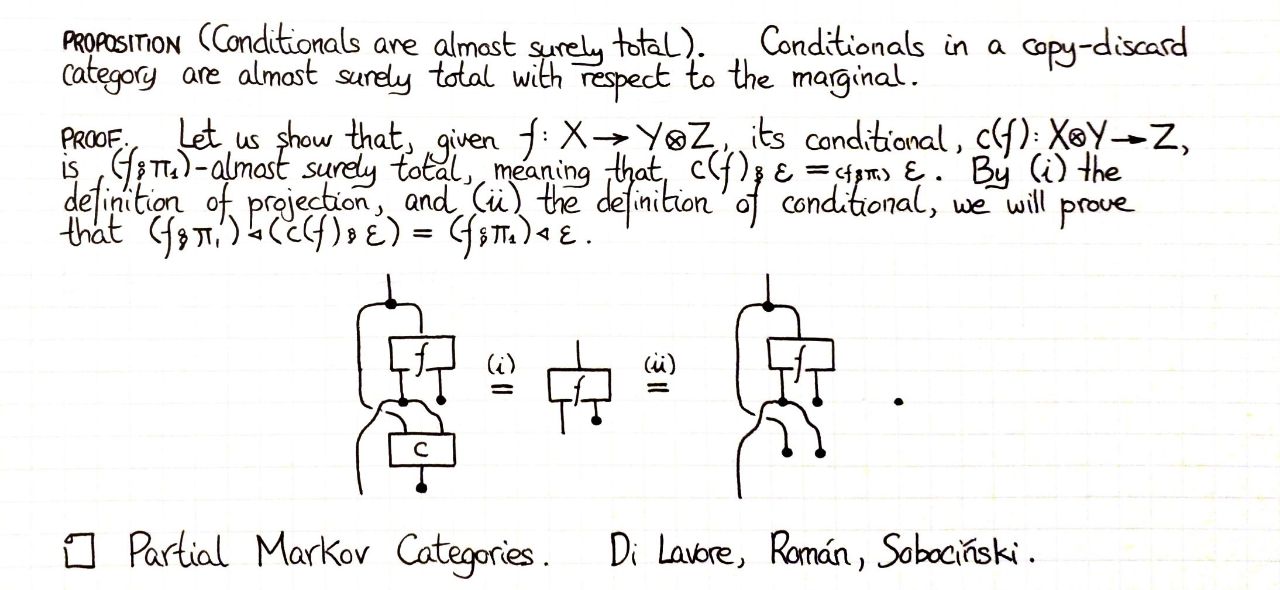 PROPOSITION (Conditionals are almost surely total). Conditionals in a copy-discard
category are almost surely total with respect to the marginal.
PROOF. Let us show that, given f: X→Y⊗Z, its conditional, c(f): X⊗Y→Z,
is (f⨾π₁)-almost surely total, meaning that c(f)⨾ε =₍f⨾π₁₎ ε. By (i) the
definition of projection, and (ii) the definition of conditional, we will prove
that (f⨾π₁)◃(c(f)⨾ε) = (f⨾π₁)◃ε.
f (i) = f (ii) = f .
c
Partial Markov Categories. Di Lavore, Román, Sobociński.